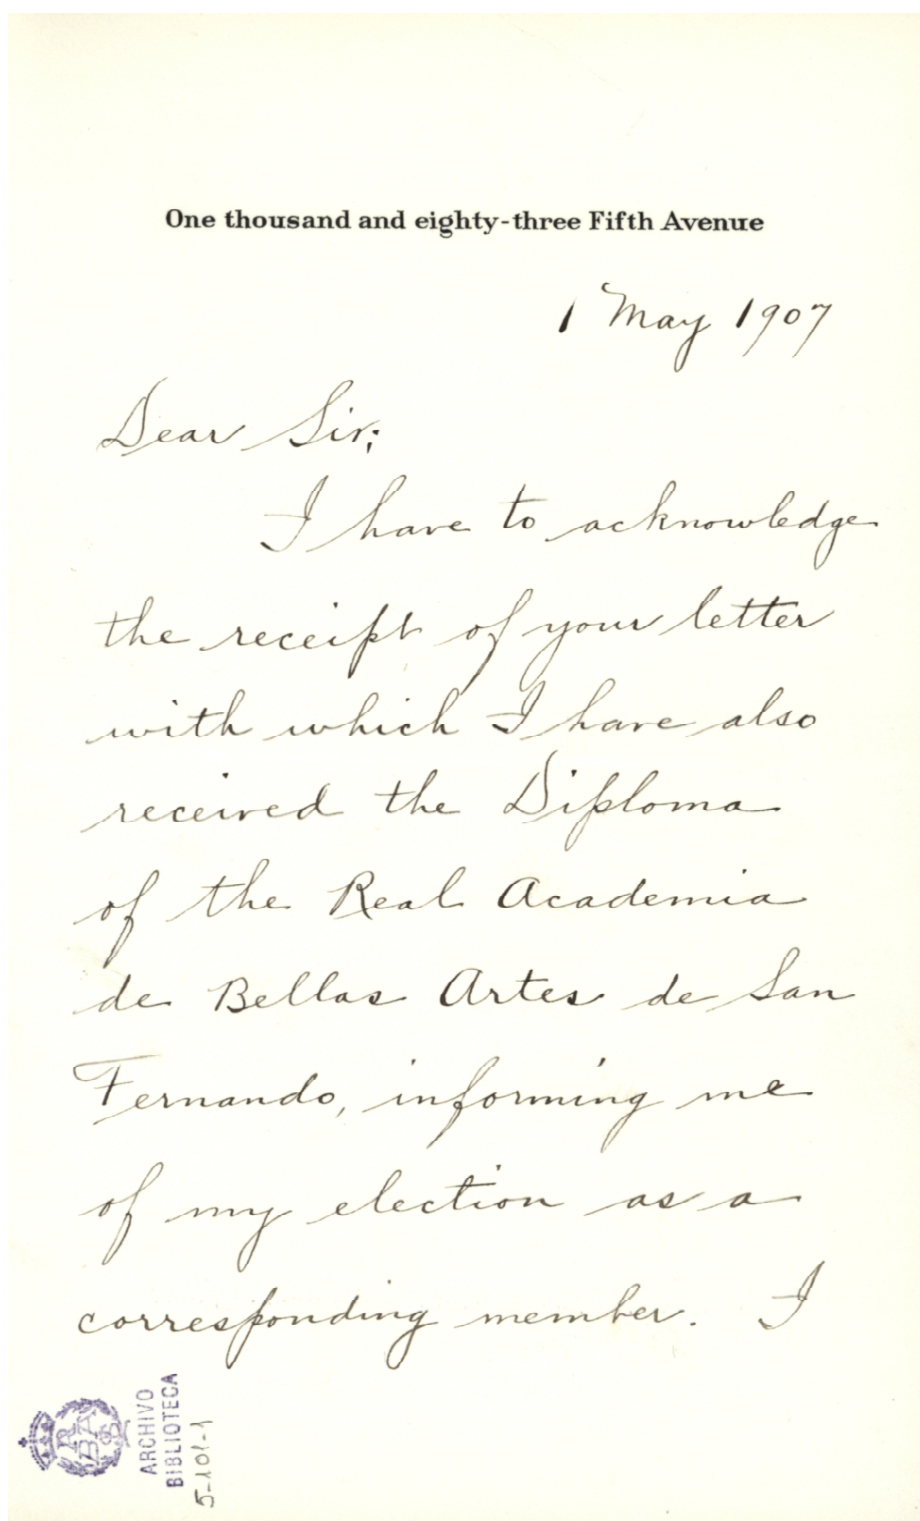 One thousand and eighty-three Fifth Avenue
1 May 1907
Dear Sir;
I have to acknowledge
the receipt of your letter
with which I have also
received the Diploma
of the Real Academia
de Bellas Artes de San
Fernando, informing me
of my election as a
corresponding member. I
RABASF
ARCHIVO
BIBLIOTECA
5-101-1